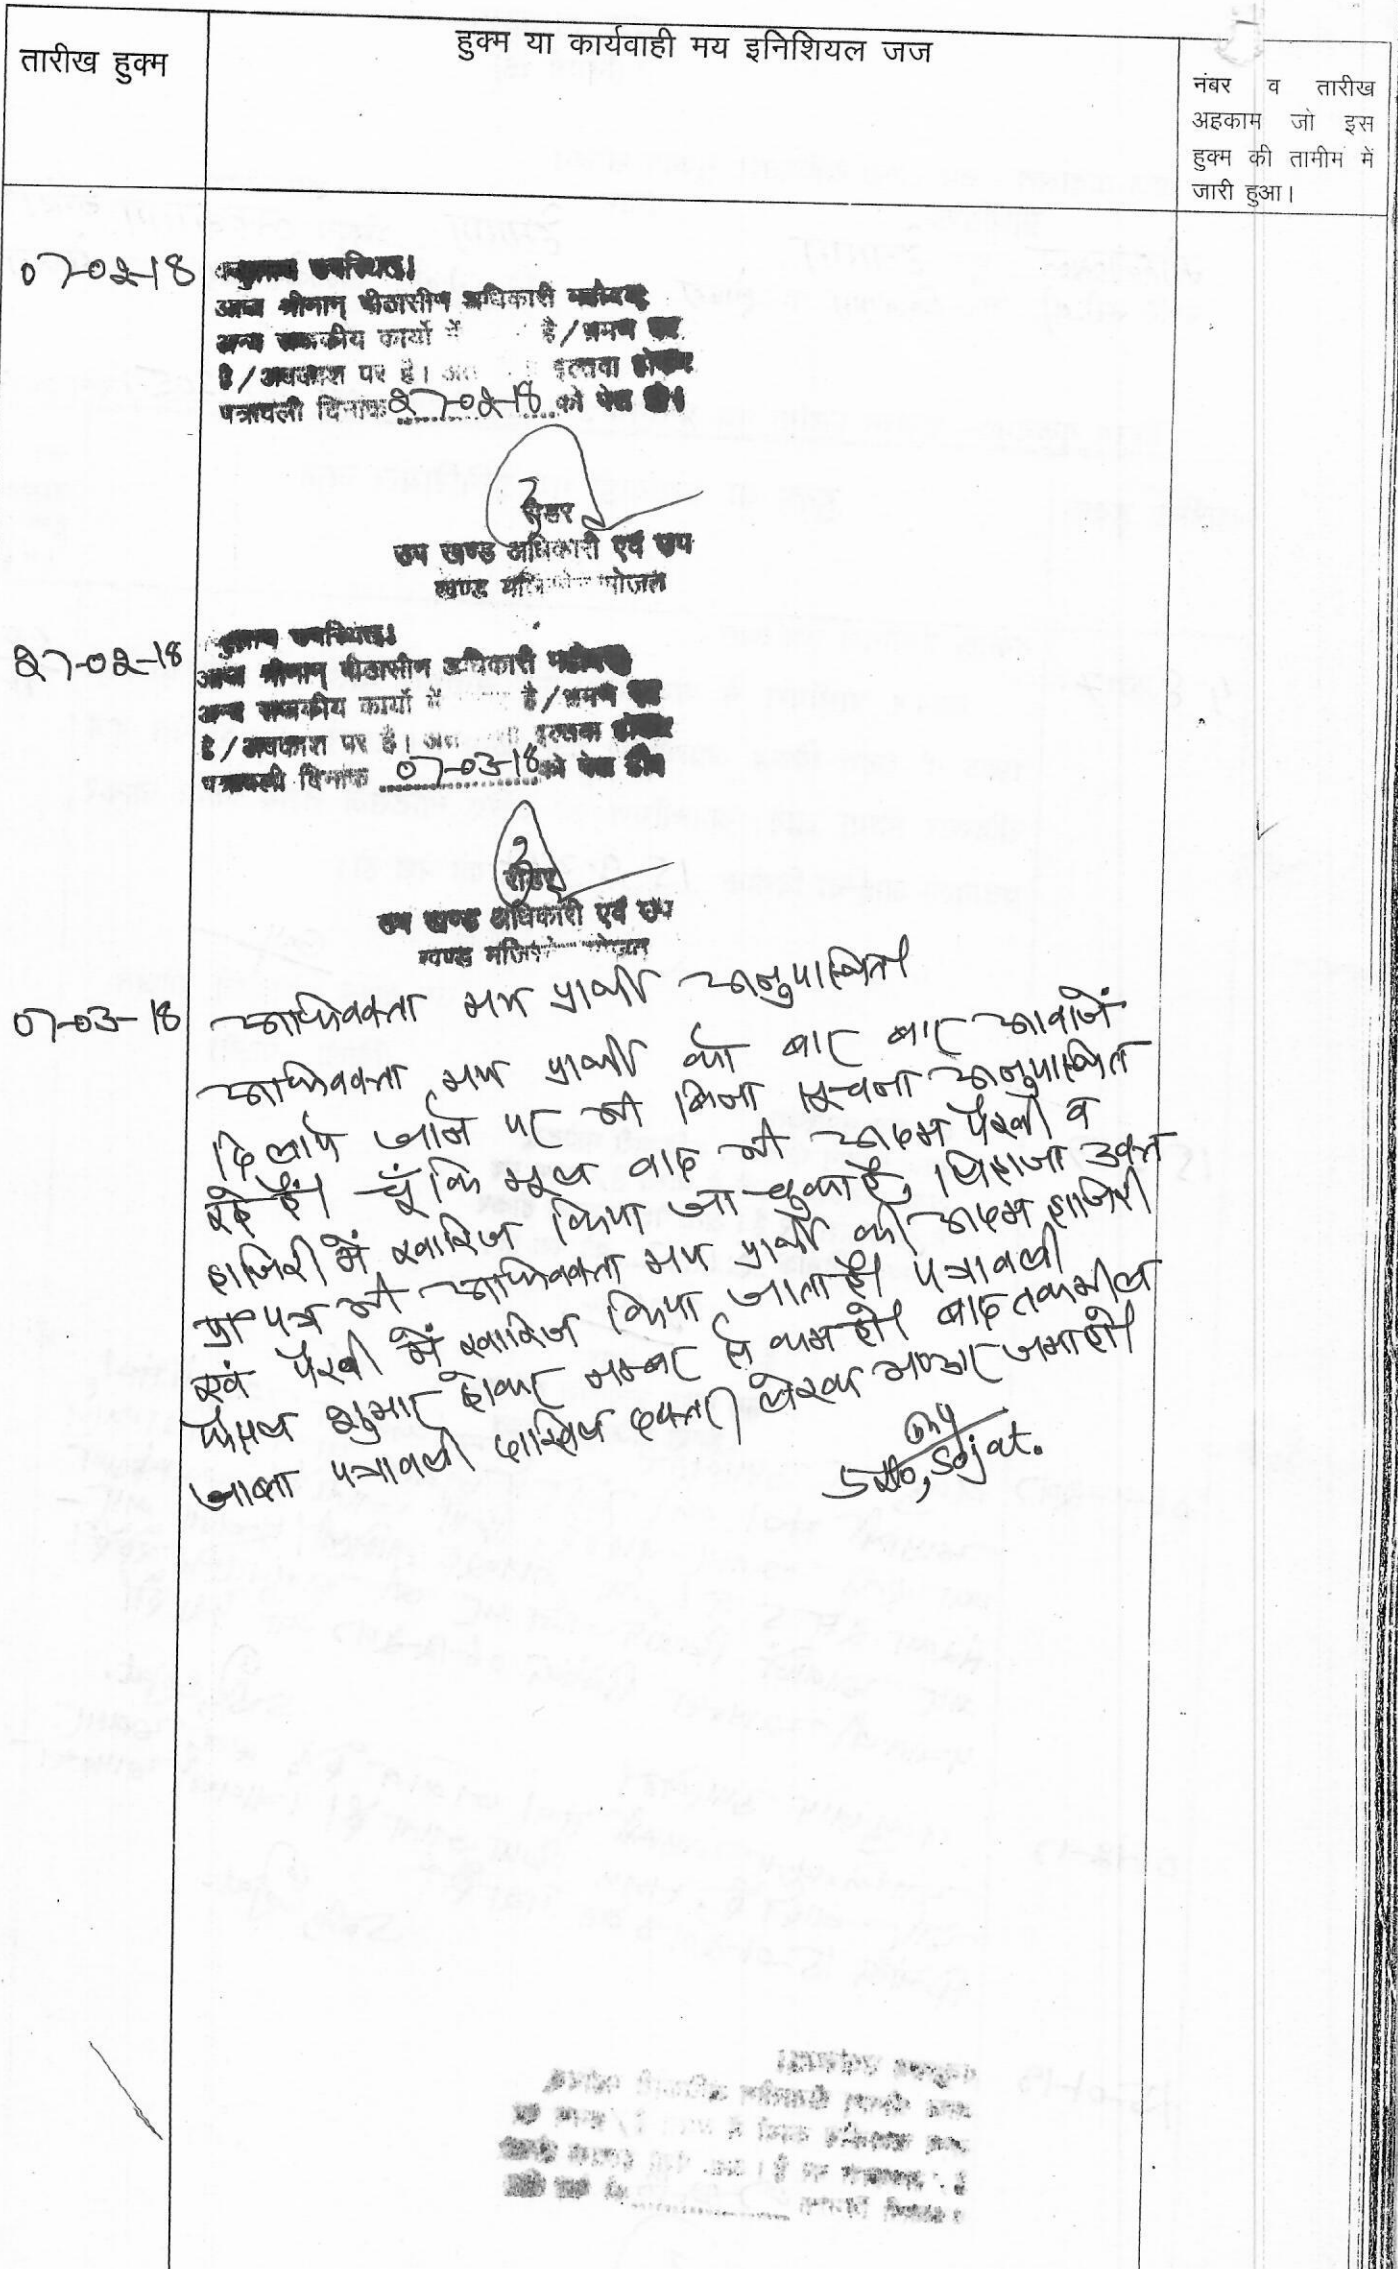 तारीख हुक्म
हुक्म या कार्यवाही मय इनिशियल जज
नंबर व तारीख
अहकाम जो इस
हुक्म की तामीम में
जारी हुआ।
07-02-18
उपस्थित।
आज श्रीमान् पीठासीन अधिकारी महोदय
अन्य राजकीय कार्यो में है/भ्रमण पर
है/अवकाश पर है। अतः इत्तवा होकर
पत्रावली दिनांक 27-02-18 को पेश हो।
रीडर
उप खण्ड अधिकारी एवं उप
खण्ड सोजत
27-02-18
उपस्थित।
आज श्रीमान् पीठासीन अधिकारी महोदय
अन्य राजकीय कार्यो में है/भ्रमण पर
है/अवकाश पर है। अतः इत्तवा होकर
पत्रावली दिनांक 07-03-18 को पेश हो।
रीडर
उप खण्ड अधिकारी एवं उप
खण्ड सोजत
07-03-18
अधिवक्ता मय प्रार्थी अनुपस्थित।
अधिवक्ता मय प्रार्थी को बार बार आवाजें
दिलाये जाने पर भी बिना सूचना अनुपस्थित
रहे हैं। चूँकि मूल वाद भी अदम पैरवी व
हाजिरी में खारिज किया जा चुका है, लिहाजा उक्त
प्रा पत्र भी अधिवक्ता मय प्रार्थी की अदम हाजिरी
एवं पैरवी में खारिज किया जाता है। पत्रावली
फैसल शुमार होकर नम्बर से कम हो। बाद तकमील
जाब्ता पत्रावली दाखिल दफ्तर जमा हो।
SDO, Sojat.